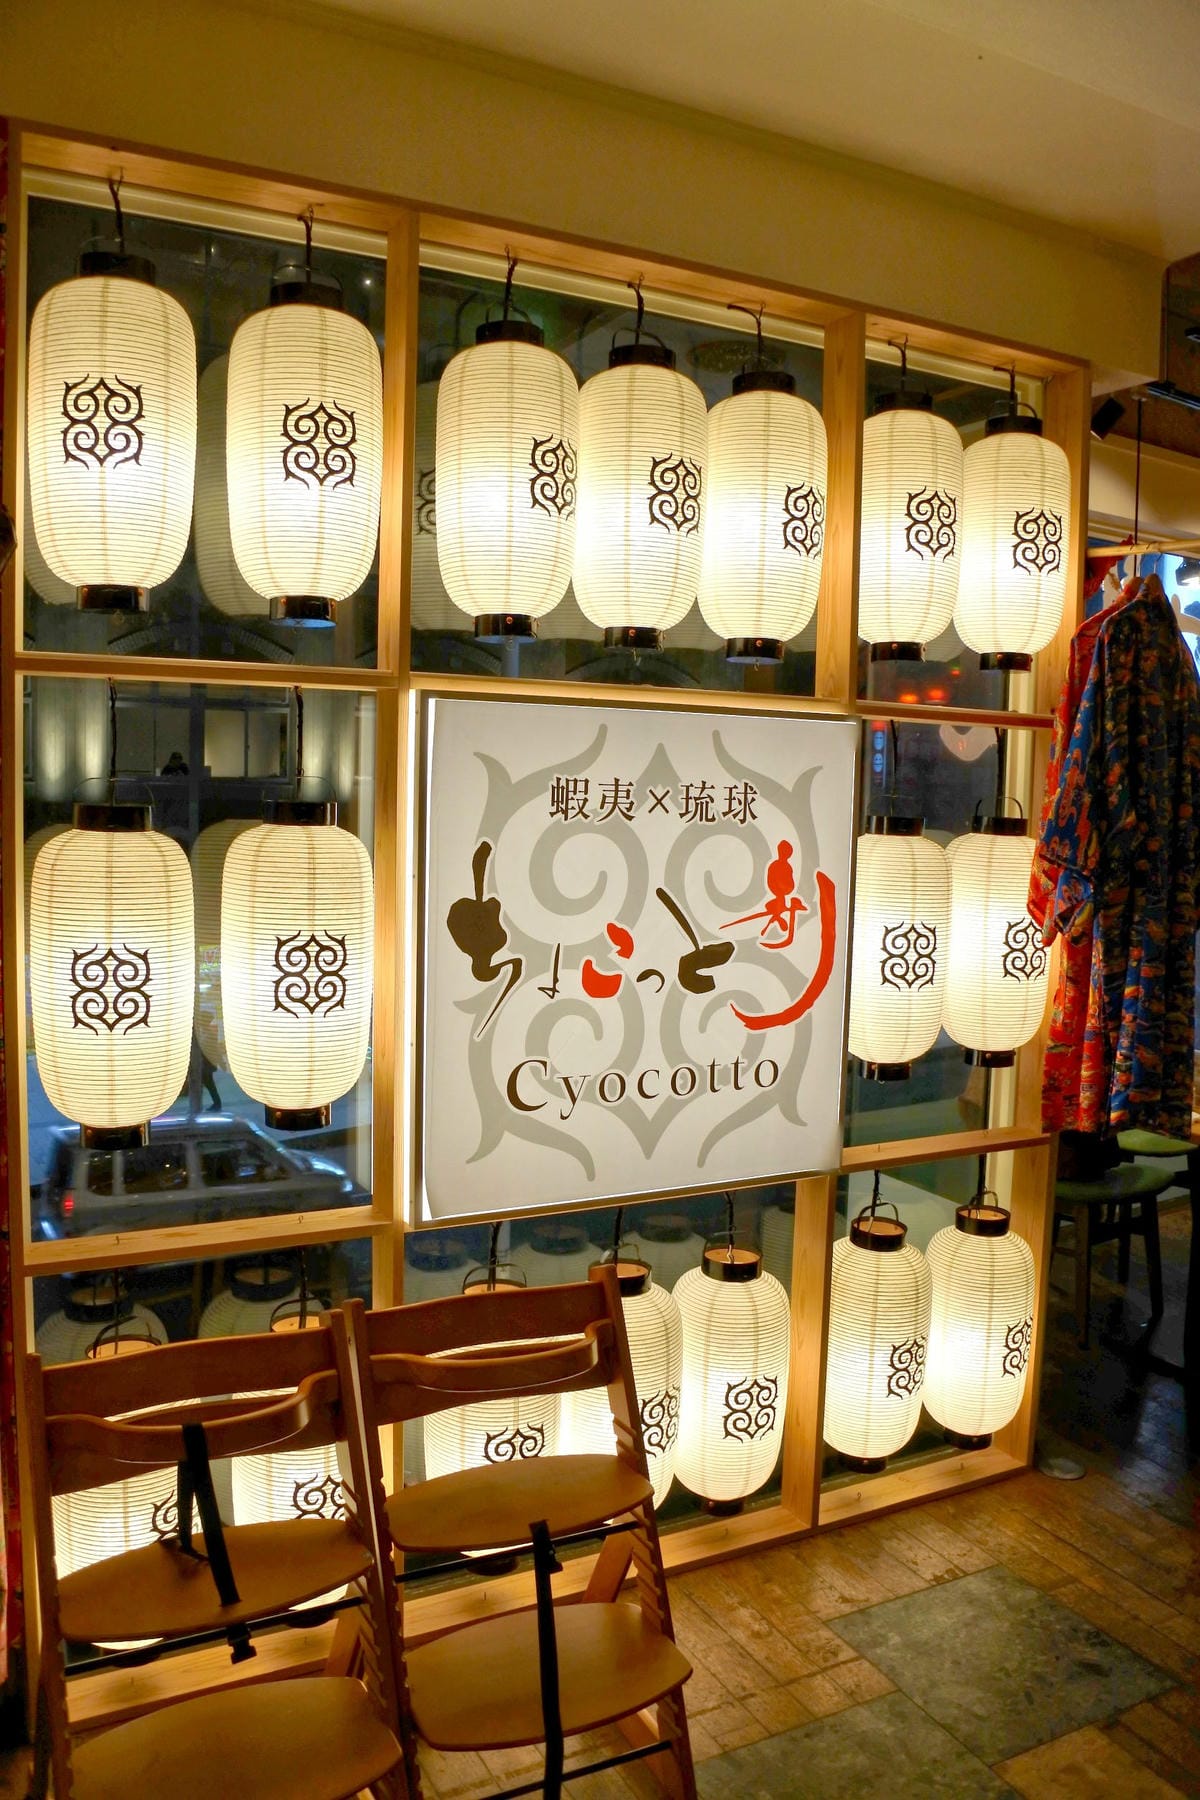 蝦夷×琉球
ちょこっと寿り
Cyocotto